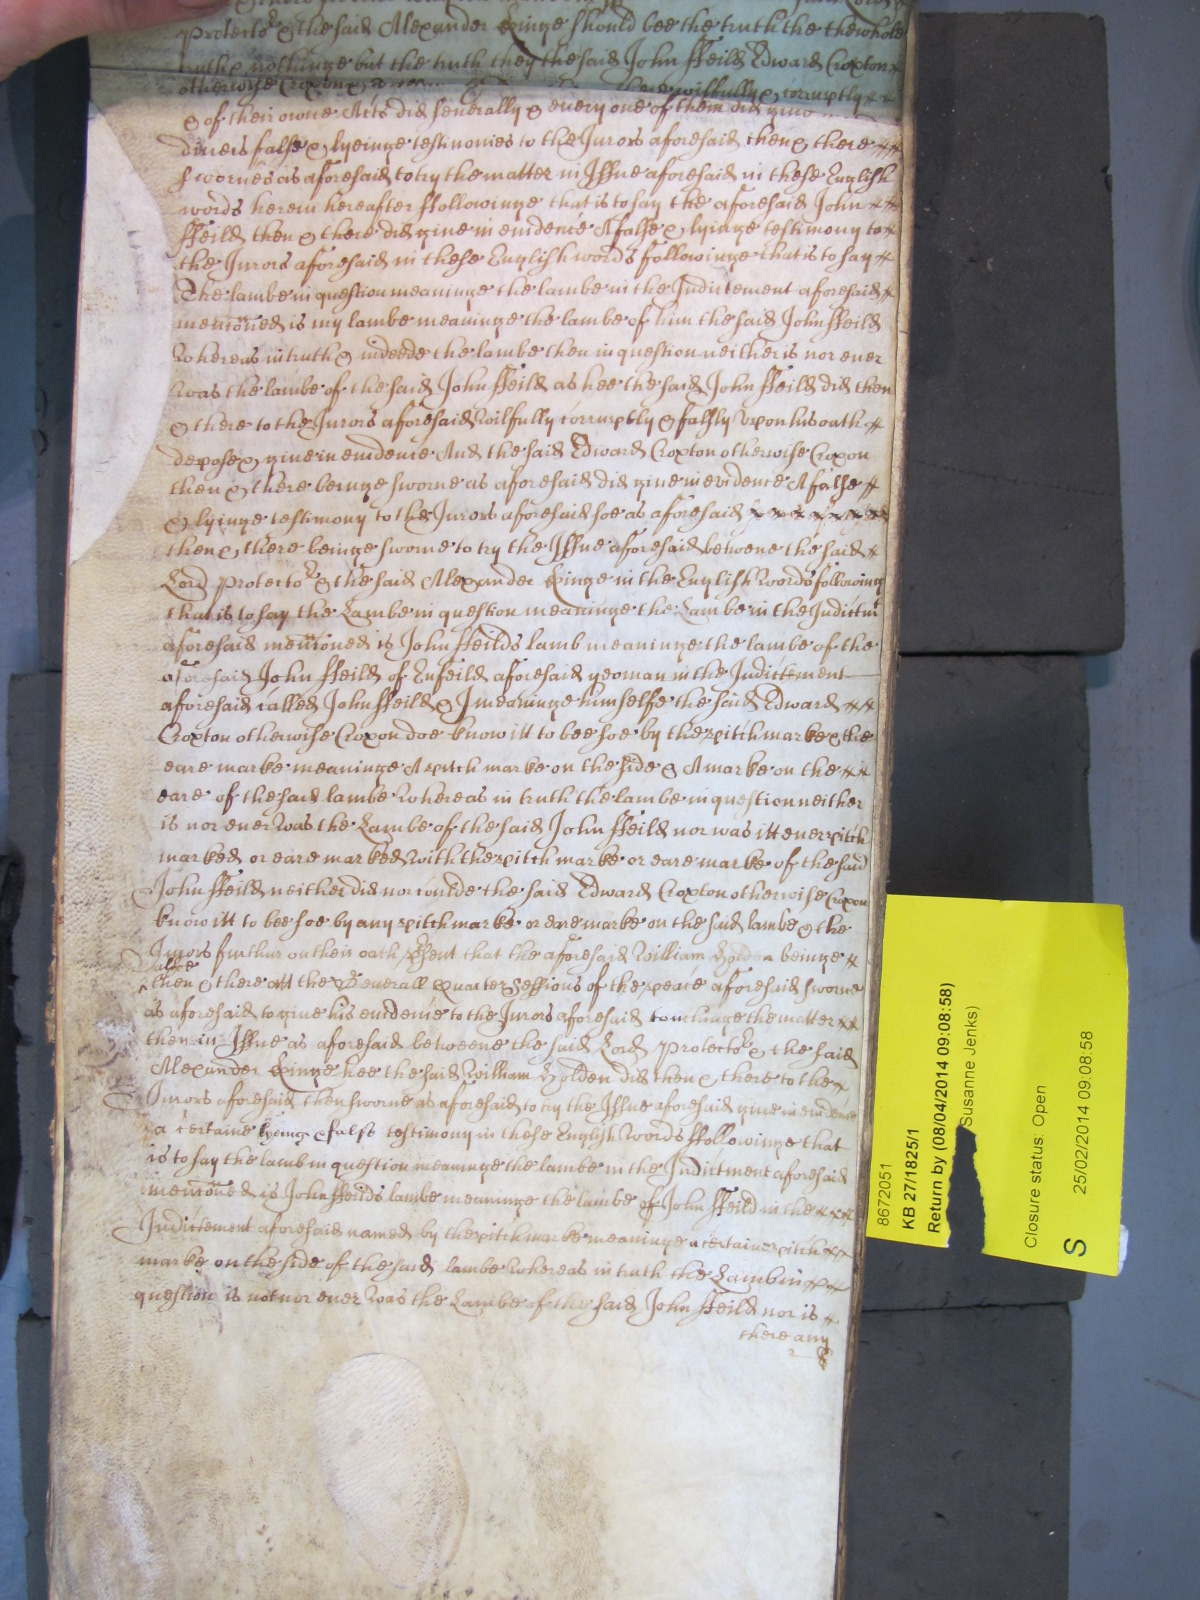 Protector & the said Alexander Epinge should bee the truth the the whole
truth & nothinge but the truth they the said John ffeild Edward Croxton
otherwise Croxon & wilfully & corruptly
& of their owne Acts did severally & every one of them did give
divers false & lyeinge testimonies to the Jurors aforesaid then & there
sworne as aforesaid to try the matter in Issue aforesaid in these English
words herein hereafter ffollowinge that is to say the aforesaid John
ffeild then & there did give in evidence A false & lyinge testimony to
the Jurors aforesaid in these English words followinge that is to say
The lambe in question meaninge the lambe in the Indictement aforesaid
mencōned is my lambe meaninge the lambe of him the said John ffeild
Whereas in truth & indeede the lambe then in question neither is nor ever
was the lambe of the said John ffeild as hee the said John ffeild did then
& there to the Jurors aforesaid wilfully corruptly & falsly upon his oath
depose & give in evidence And the said Edward Croxton otherwise Croxon
then & there beinge sworne as aforesaid did give in evidence A false
& lyinge testimony to the Jurors aforesaid soe as aforesaid
then & there beinge sworne to try the Issue aforesaid betweene the said
Lord Protector & the said Alexander Epinge in the English words following
that is to say the Lambe in question meaninge the Lambe in the Indictmt
aforesaid mencōned is John ffeilds lamb meaninge the lambe of the
aforesaid John ffeild of Enfeild aforesaid yeoman in the Indictement
aforesaid called John ffeild & I meaninge himselfe the said Edward
Croxton otherwise Croxon doe know itt to bee soe by the pitch marke & the
eare marke meaninge A pitch marke on the side & A marke on the
eare of the said lambe Whereas in truth the lambe in question neither
is nor ever was the Lambe of the said John ffeild nor was itt ever pitch
marked or eare marked with the pitch marke or eare marke of the said
John ffeild neither did nor coulde the said Edward Croxton otherwise Croxon
know itt to bee soe by any pitch marke or eare marke on the said lambe & the
Jurors further on their oath p̱sent that the aforesaid William Holden beinge
alsoe
then & there att the Generall Quarter Sessions of the peace aforesaid sworne
as aforesaid to give his evidence to the Jurors aforesaid touchinge the matter
then in Issue as aforesaid betweene the said Lord Protector & the said
Alexander Epinge hee the said William Holden did then & there to the
Jurors aforesaid then sworne as aforesaid to try the Issue aforesaid give in evidence
a certaine lyeing & false testimony in these English words ffollowinge that
is to say the lamb in question meaninge the lambe in the Indictment aforesaid
mencōned is John ffeilds lambe meaninge the lambe of John ffeild in the
Indictement aforesaid named by the pitch marke meaninge a certaine pitch
marke on the side of the said lambe Whereas in truth the Lamb in
question is not nor ever was the Lambe of the said John ffeild nor is
there any
8672051
KB 27/1825/1
Return by (08/04/2014 09:08:58)
Susanne Jenks)
Closure status: Open
S
25/02/2014 09:08:58